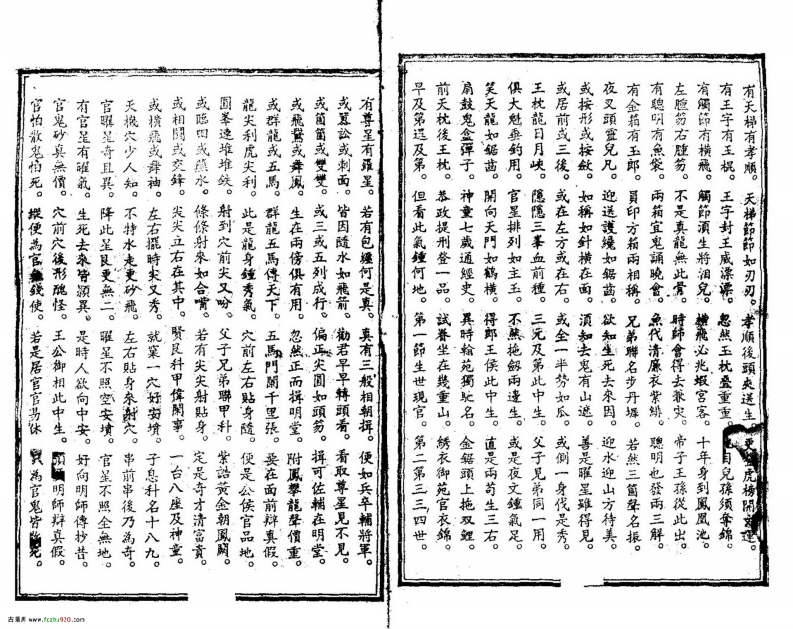 有天梯有孝順。天梯節節如刃刃。孝順後頭夾送生。虎榜開文運。
有王字有王梶。王字封王威凜凜。忽然玉枕疊重重。目兒孫須衣錦。
有觸節有橫飛。觸節須生將相兒。橫飛必兆蝦宮客。十年身到鳳凰池。
左膻笏右膻笏。不是真龍無此骨。時師會得去兼史。帝子王孫從此出。
有聰明有魚袋。兩箱宜鬼誦晚會。魚代清廉衣紫緋。聰明也發兩三解。
有金箱有玉郎。員印方箱兩相稱。兄弟聯名步丹墀。若然三箇聲名振。
夜叉頭靈兒凡。迎送護纏如鋸齒。欲知生死去來因。迎水迎山方待美。
或按形或按歛。如稱如針橫在面。須知去鬼有山遮。善是曜星雖得見。
或居前或三後。或在左方或在右。或全一半勢如瓜。或倒一身伐是秀。
王枕龍日月峽。隱隱三峯血前種。三元及第此中生。父子兄弟同一用。
俱大魁垂釣用。官星排列如主玉。不然拖劔兩邊生。或是夜文鍾氣足。
笑天龍如鋸齒。開向天門如鶴橫。得郎王侯此中生。直是兩苟生三右。
扇鼓鬼盒彈子。神童七歲通經史。異時翰苑獨馳名。金鋸頭上拖双鯉。
前天枕後王枕。恭政提刑登一品。試看坐在幾重山。綉衣御苑官衣錦。
早及第迟及第。但看此氣鍾何地。第一節生世現官。第二第三三四世。
有尊星有羅星。若有包纏何是真。真有三般相朝揖。便如兵卒輔將軍。
或囂訟或刺面。皆因隨水如飛箭。勸君早早轉頭看。看取尊星見不見。
或箇箇或雙雙。或三或五列成行。偏正尖圓如頭笏。揖可佐輔在明堂。
或飛鸞或舞鳳。生在兩傍俱有用。忽然正而揖明堂。附鳳攀龍聲價重。
或群龍或五馬。群龍五馬傳天下。五馬門闌千里張。要在面前辯真假。
龍尖利虎尖利。此是龍身鍾秀氣。穴前左右貼身隨。便是公侯官品地。
圓峯遠堆堆鉄。射到穴前尖又吻。父子兄弟聯甲科。紫誥黃金朝鳳闕。
或臨田或蘸水。條條射來如合嘴。若有尖尖射貼身。定是奇才清富貴。
或相鬪或交鋒。尖尖立右在其中。賢良科甲偉閒事。一台八座及神童。
或橫飛或舞袖。左右擺時尖又秀。就葉一穴好安墳。子息科名十八九。
天機穴少人知。不特水走更砂飛。左右貼身來射穴。串前串後乃為奇。
官曜星奇且異。降此星良更無二。曜星不照空安墳。官星不照全無地。
有官星有曜氣。生死去來皆顈異。是時人欲向中安。好向明師傳抄昔。
官鬼砂真無價。穴前穴後形醜怪。王公御相此中生。明師辯真假。
官怕散鬼怕死。縱便為官無錢使。若是居官官易休。為官鬼皆死。
古籍库 www.fczhu920.com